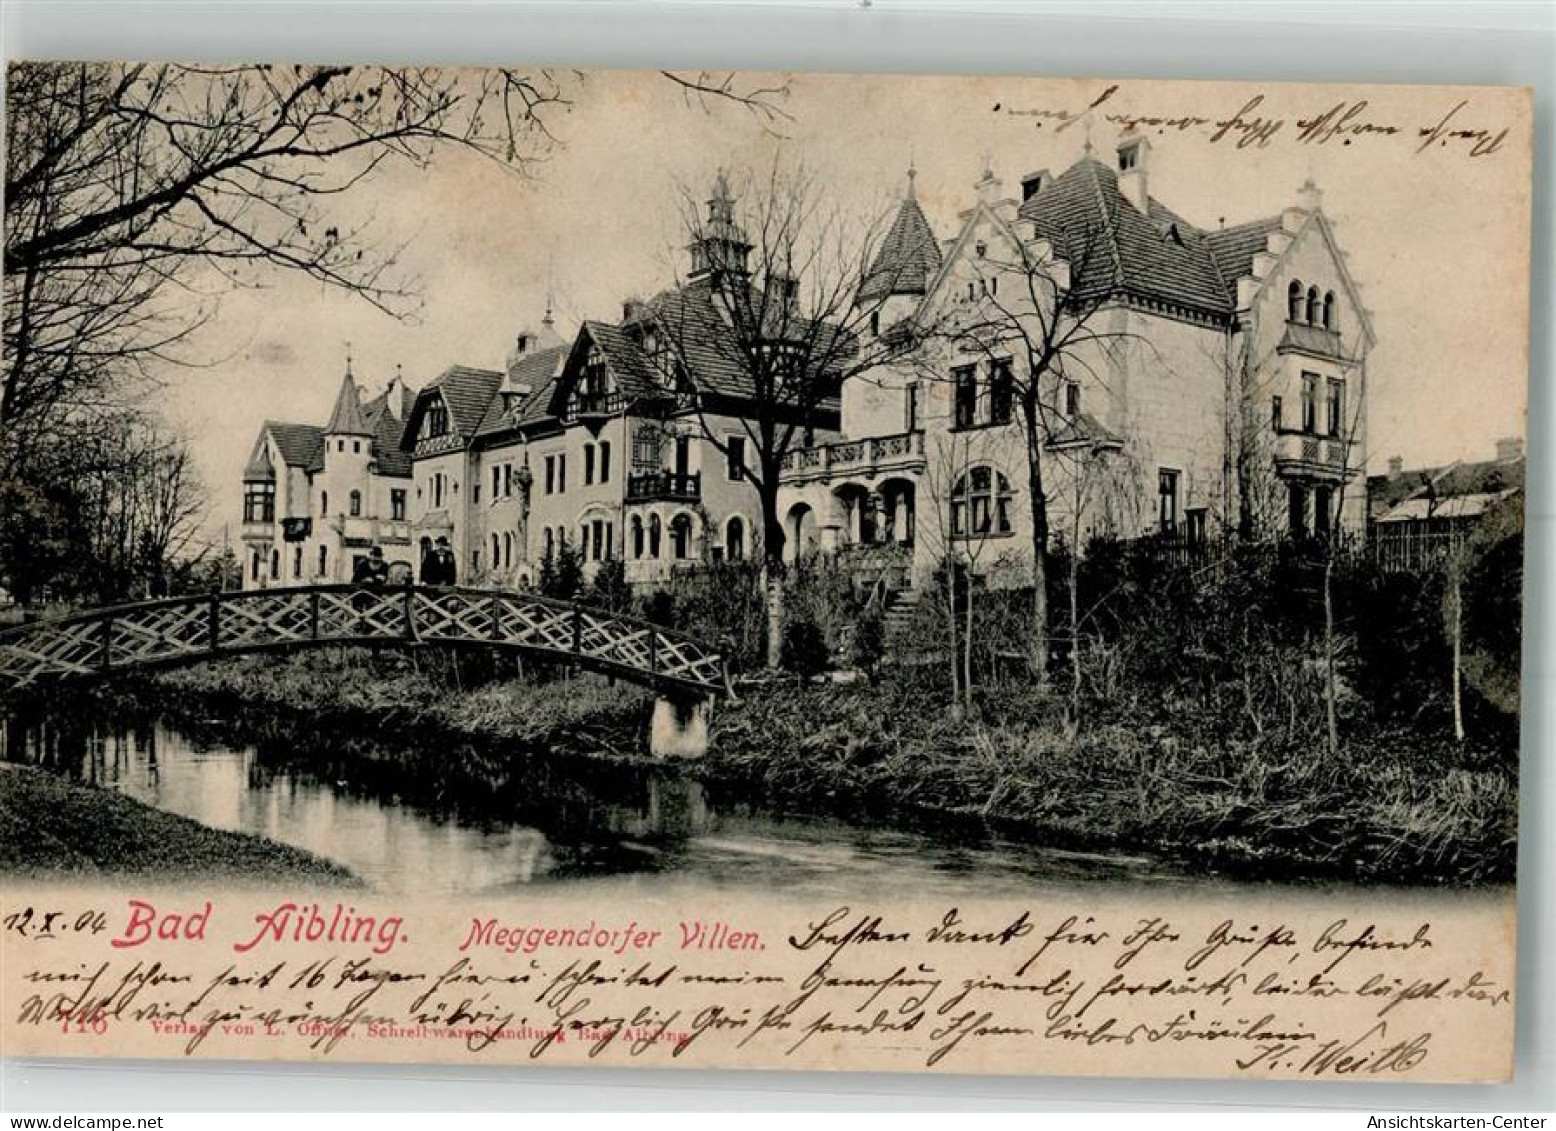 Reise nächste Woche wieder heim.
12.X.04 Bad Aibling. Meggendorfer Villen. Besten Dank für Ihre Grüße, befinde
mich schon seit 16 Tagen hier u. schreitet meine Genesung ziemlich forwärts, leider läßt das
Wetter viel zu wünschen übrig. Herzlich Grüße sendet Ihnen liebes Fräulein
716 Verlag von L. Offner, Schreibwarenhandlung Bad Aibling.
Weitl
Ansichtskarten-Center